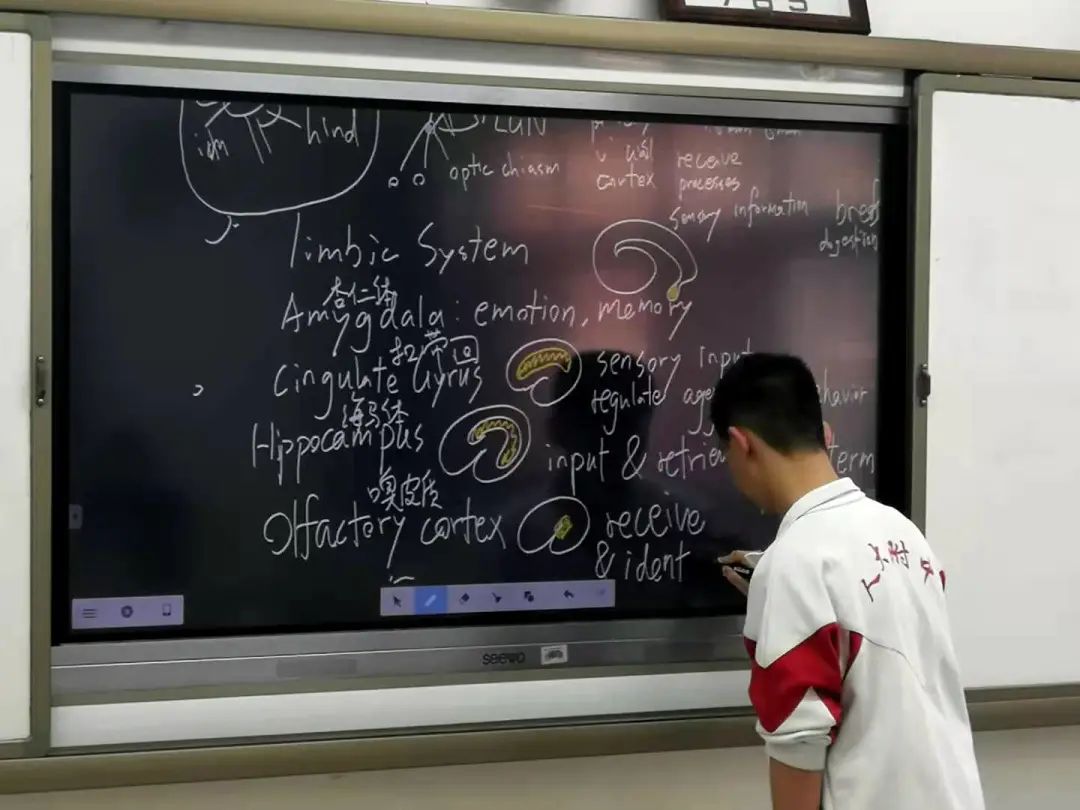 hind
optic chiasm
cortex
receive
processes
sensory information
digestion
limbic System
杏仁体
Amygdala: emotion, memory
扣带回
Cingulate Gyrus
sensory input
regulate
海马体
Hippocampus
input &
term
嗅皮质
Olfactory cortex
receive
& ident
seewo
附中